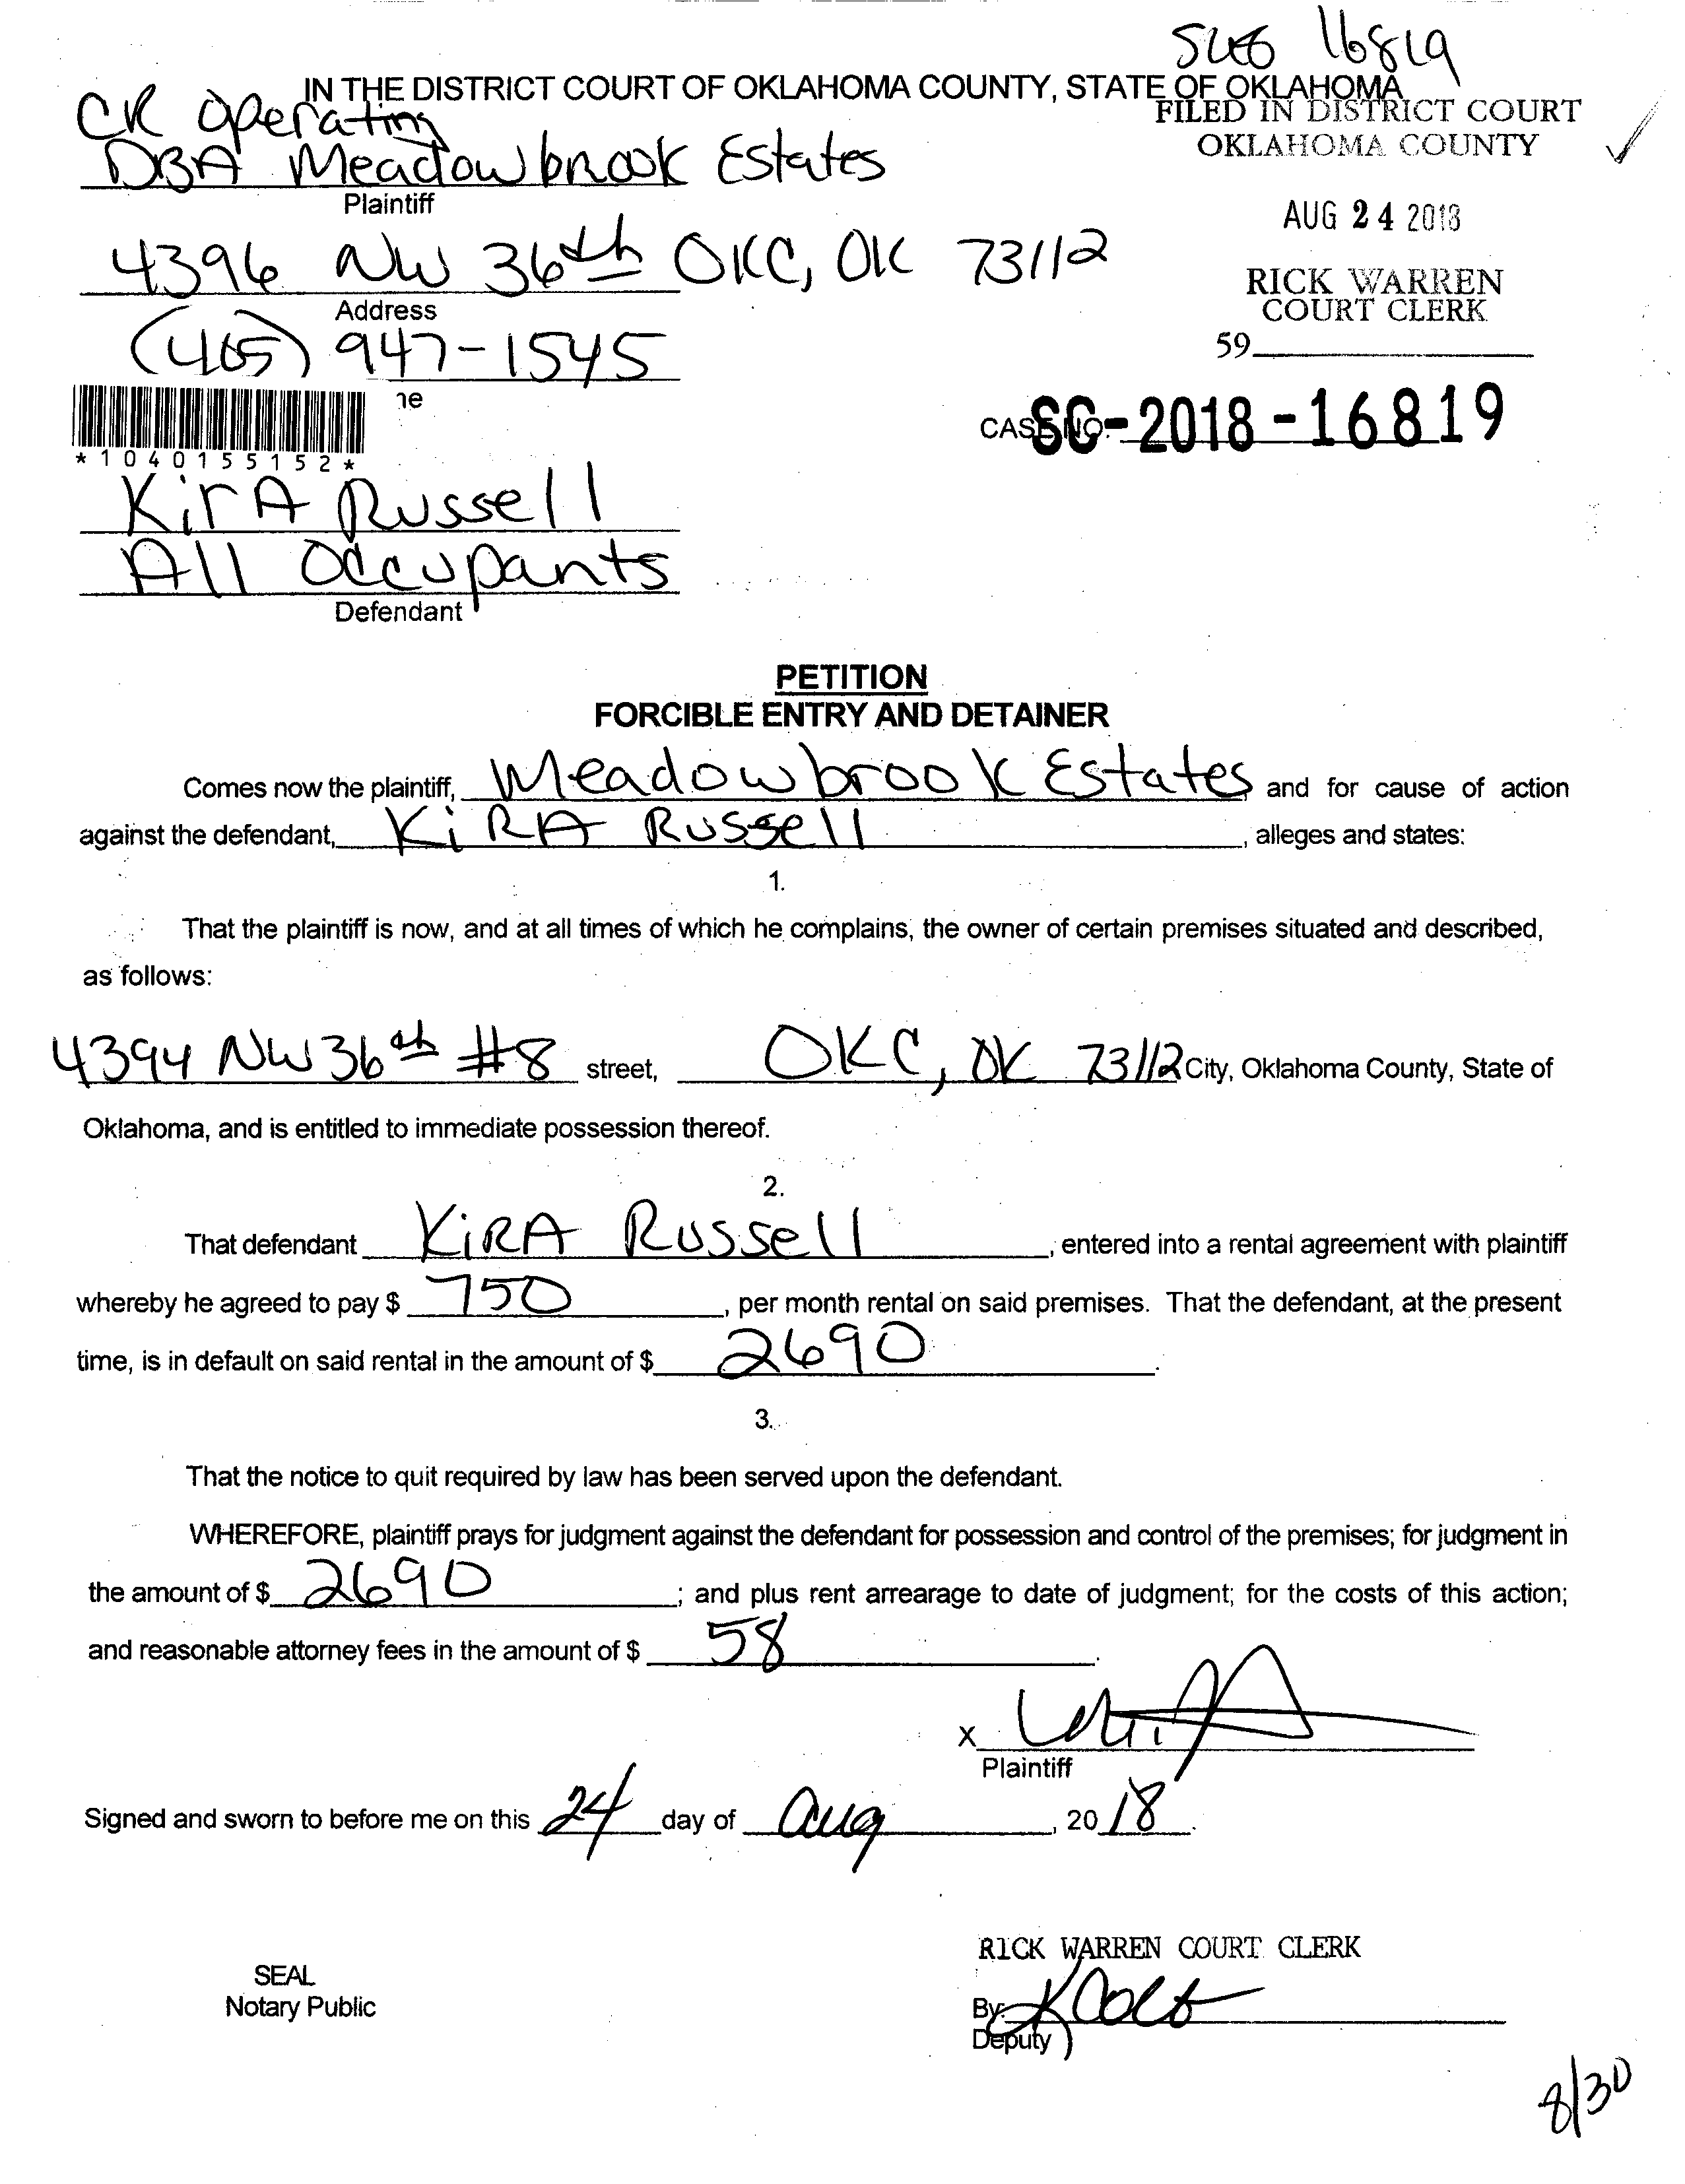 SC 16819
IN THE DISTRICT COURT OF OKLAHOMA COUNTY, STATE OF OKLAHOMA
FILED IN DISTRICT COURT
OKLAHOMA COUNTY
CK Operating
DBA Meadowbrook Estates
Plaintiff
AUG 24 2018
4396 NW 36th OKC, OK 73112
Address
RICK WARREN
COURT CLERK
59
(405) 947-1545
ne
CASE NO. SC-2018-16819
*1040155152*
KirA Russell
All Occupants
Defendant
PETITION
FORCIBLE ENTRY AND DETAINER
Comes now the plaintiff, Meadowbrook Estates and for cause of action
against the defendant, KiRA Russell, alleges and states:
1.
That the plaintiff is now, and at all times of which he complains, the owner of certain premises situated and described,
as follows:
4394 NW 36th #8 street, OKC, OK 73112 City, Oklahoma County, State of
Oklahoma, and is entitled to immediate possession thereof.
2.
That defendant KiRA Russell, entered into a rental agreement with plaintiff
whereby he agreed to pay $ 750, per month rental on said premises. That the defendant, at the present
time, is in default on said rental in the amount of $ 2690.
3.
That the notice to quit required by law has been served upon the defendant.
WHEREFORE, plaintiff prays for judgment against the defendant for possession and control of the premises; for judgment in
the amount of $ 2690; and plus rent arrearage to date of judgment; for the costs of this action;
and reasonable attorney fees in the amount of $ 58.
X
Plaintiff
Signed and sworn to before me on this 24 day of Aug, 2018.
RICK WARREN COURT CLERK
SEAL
Notary Public
By:
Deputy
8/30